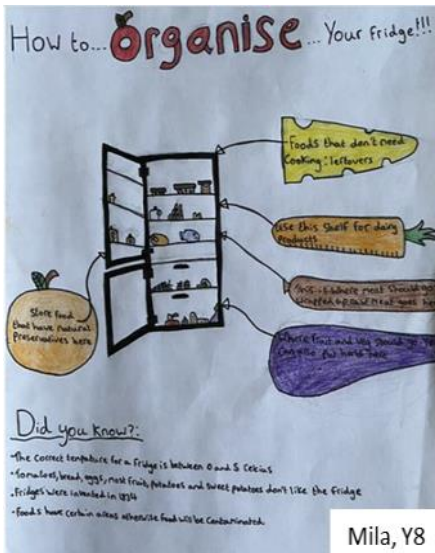 How to... Organise ... Your fridge!!!
Foods that don't need
Cooking: leftovers
Use this shelf for dairy
products
This is where meat should go
wrapped up raw meat goes
Store food
that have natural
preservatives here
Where fruit and veg should go
put hard here
Did you know?:
•The correct tempature for a fridge is between 0 and 5 Celcius
•Tomatoes, bread, eggs, most fruit, potatoes and sweet potatoes don't like the fridge
•Fridges were invented in 1834
•Foods have certain areas otherwise food will be contaminated
Mila, Y8